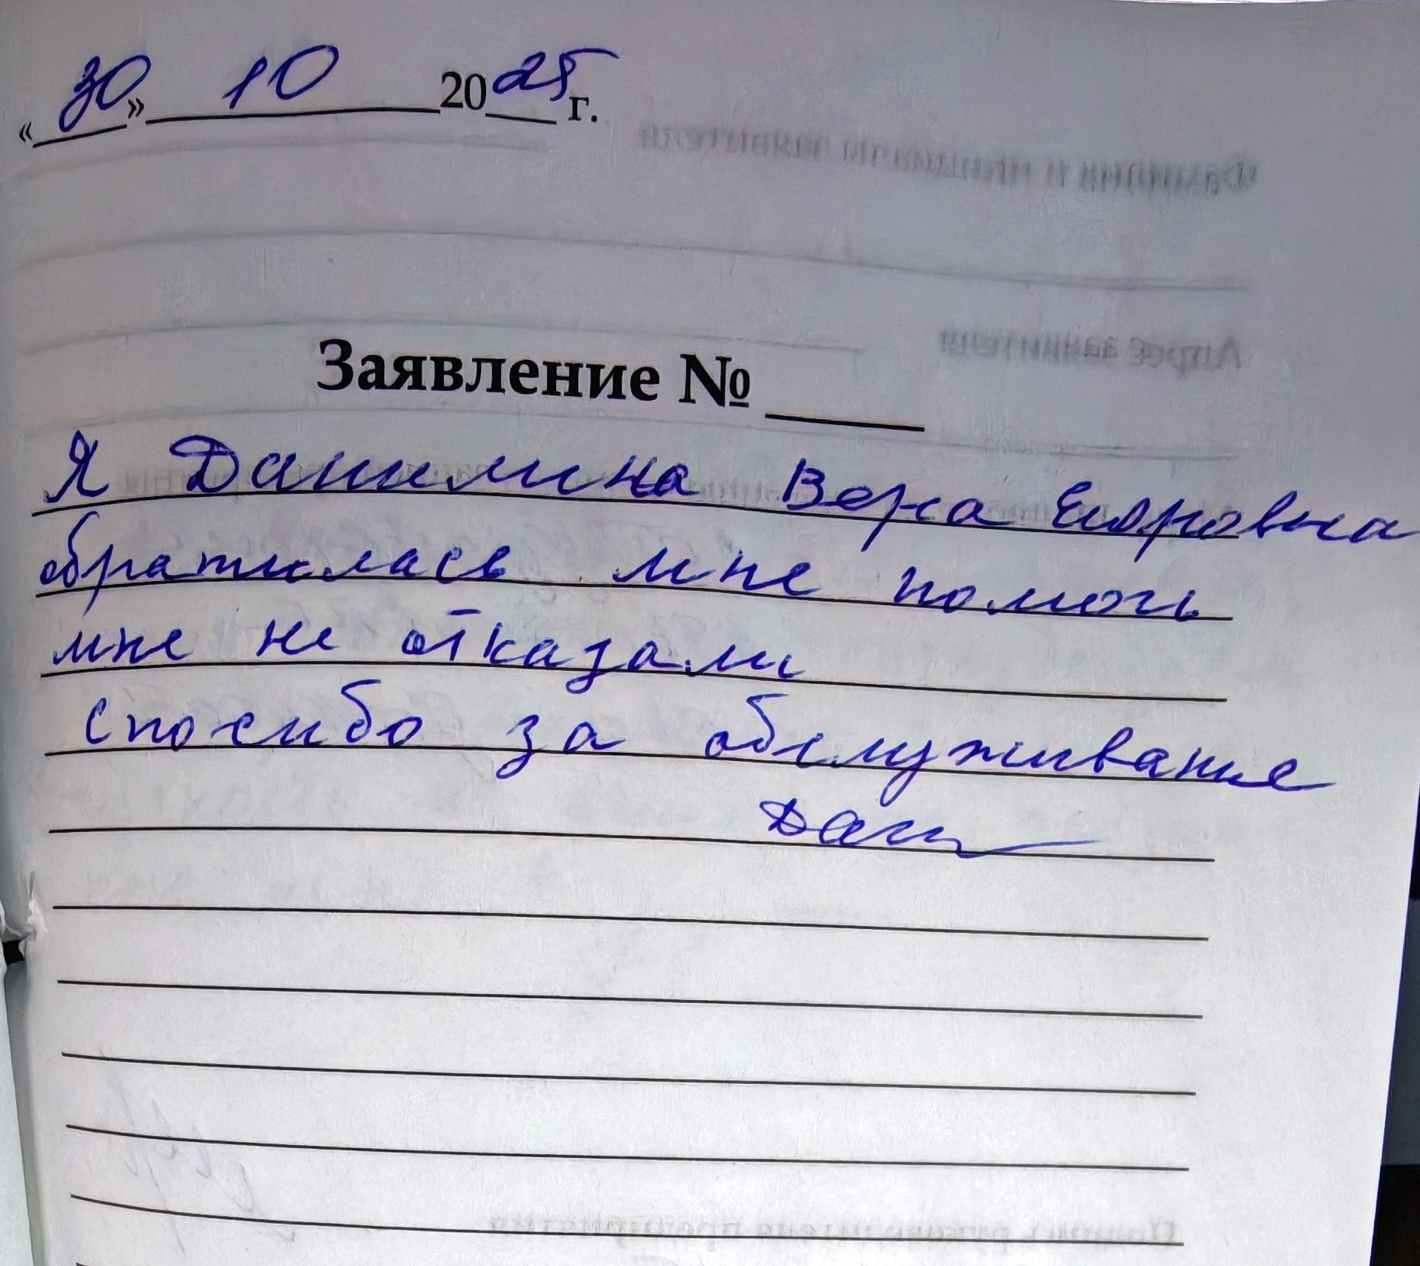 «30» 10 2025 г.
Заявление № ____
Я Данилина Вера
обратилась мне помочь
мне не отказали
спосибо за обслуживание